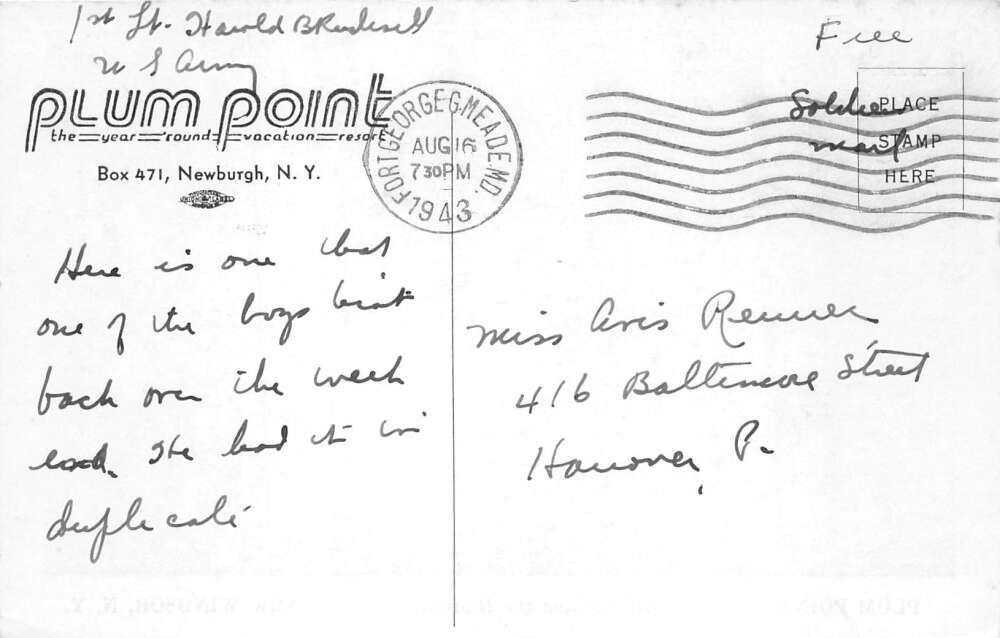 1st Lt. Harold B Rudisell
U S Army
Free
plum point
the year 'round vacation resort
Box 471, Newburgh, N. Y.
FORT GEORGE G. MEADE, MD.
AUG 16
7 30 PM
1943
Soldier
mail
PLACE
STAMP
HERE
Here is one that
one of the boys
back over the week
end. He had it in
duplicate
Miss Avis Renner
416 Baltimore Street
Hanover, Pa.
PLUM POINT
NEW WINDSOR, N. Y.